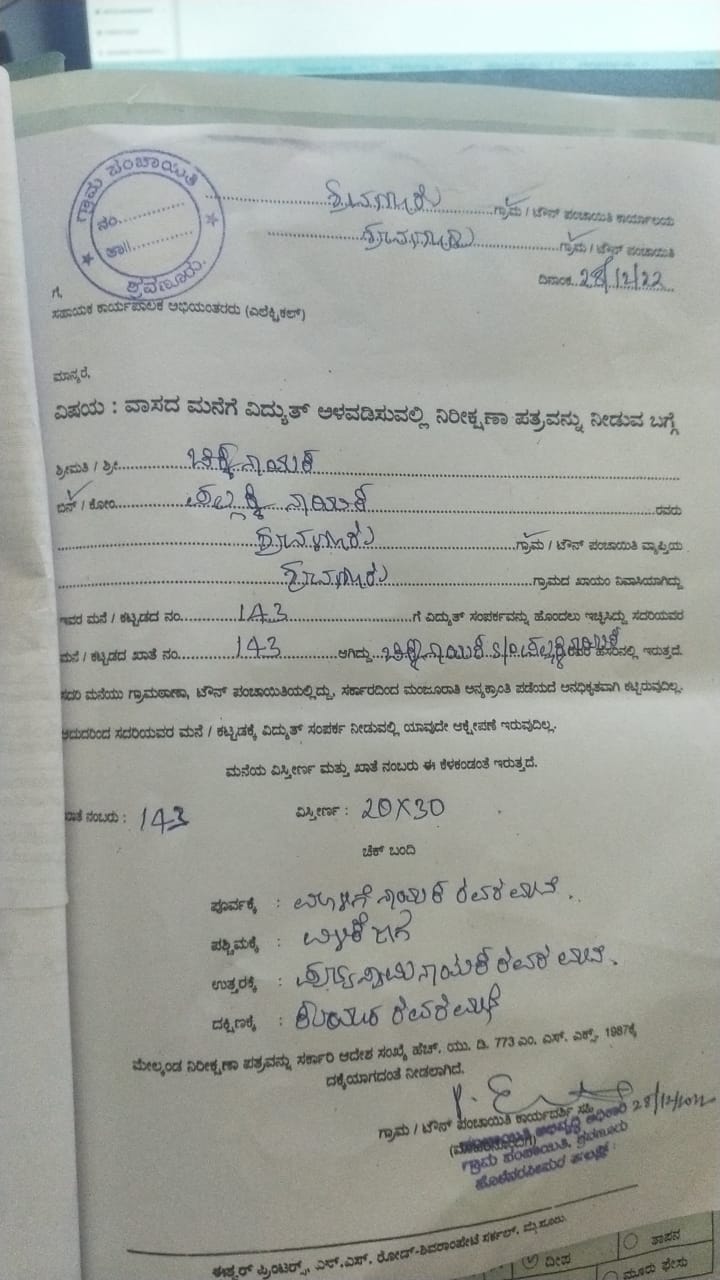 ಗ್ರಾಮ ಪಂಚಾಯಿತಿ
ನಂ.
ತಾ||.
ಶ್ರವಣೂರು.
ಗ್ರಾಮ / ಟೌನ್ ಪಂಚಾಯಿತಿ ಕಾರ್ಯಾಲಯ
ಗ್ರಾಮ / ಟೌನ್ ಪಂಚಾಯಿತಿ
ದಿನಾಂಕ 28/12/22
ಗೆ,
ಸಹಾಯಕ ಕಾರ್ಯಪಾಲಕ ಅಭಿಯಂತರರು (ಎಲೆಕ್ಟ್ರಿಕಲ್)
ಮಾನ್ಯರೆ,
ವಿಷಯ : ವಾಸದ ಮನೆಗೆ ವಿದ್ಯುತ್ ಅಳವಡಿಸುವಲ್ಲಿ ನಿರೀಕ್ಷಣಾ ಪತ್ರವನ್ನು ನೀಡುವ ಬಗ್ಗೆ
ಶ್ರೀಮತಿ / ಶ್ರೀ ಚಿಕ್ಕನಾಯಕ
ಬಿನ್ / ಕೋಂ ನಾಯಕ ರವರು
ಗ್ರಾಮ / ಟೌನ್ ಪಂಚಾಯಿತಿ ವ್ಯಾಪ್ತಿಯ
ಗ್ರಾಮದ ಖಾಯಂ ನಿವಾಸಿಯಾಗಿದ್ದು
ಇವರ ಮನೆ / ಕಟ್ಟಡದ ನಂ. 143 ಗೆ ವಿದ್ಯುತ್ ಸಂಪರ್ಕವನ್ನು ಹೊಂದಲು ಇಚ್ಛಿಸಿದ್ದು ಸದರಿಯವರ
ಮನೆ / ಕಟ್ಟಡದ ಖಾತೆ ನಂ. 143 ಆಗಿದ್ದು ಚಿಕ್ಕನಾಯಕ S/o ಹೆಸರಿನಲ್ಲಿ ಇರುತ್ತದೆ.
ಸದರಿ ಮನೆಯು ಗ್ರಾಮಠಾಣಾ, ಟೌನ್ ಪಂಚಾಯಿತಿಯಲ್ಲಿದ್ದು, ಸರ್ಕಾರದಿಂದ ಮಂಜೂರಾತಿ ಅನ್ಯಕ್ರಾಂತಿ ಪಡೆಯದೆ ಅನಧಿಕೃತವಾಗಿ ಕಟ್ಟಿರುವುದಿಲ್ಲ.
ಆದುದರಿಂದ ಸದರಿಯವರ ಮನೆ / ಕಟ್ಟಡಕ್ಕೆ ವಿದ್ಯುತ್ ಸಂಪರ್ಕ ನೀಡುವಲ್ಲಿ ಯಾವುದೇ ಆಕ್ಷೇಪಣೆ ಇರುವುದಿಲ್ಲ.
ಮನೆಯ ವಿಸ್ತೀರ್ಣ ಮತ್ತು ಖಾತೆ ನಂಬರು ಈ ಕೆಳಕಂಡಂತೆ ಇರುತ್ತದೆ.
ಖಾತೆ ನಂಬರು : 143 ವಿಸ್ತೀರ್ಣ : 20X30
ಚೆಕ್ ಬಂದಿ
ಪೂರ್ವಕ್ಕೆ : ನಾಯಕ ರವರ ಮನೆ.
ಪಶ್ಚಿಮಕ್ಕೆ :
ಉತ್ತರಕ್ಕೆ : ನಾಯಕ ರವರ ಮನೆ.
ದಕ್ಷಿಣಕ್ಕೆ : ರವರ ಮನೆ
ಮೇಲ್ಕಂಡ ನಿರೀಕ್ಷಣಾ ಪತ್ರವನ್ನು ಸರ್ಕಾರಿ ಆದೇಶ ಸಂಖ್ಯೆ ಹೆಚ್. ಯು. ಡಿ. 773 ಎಂ. ಎಸ್. ಎಕ್ಸ್. 1987ಕ್ಕೆ
ದಕ್ಕೆಯಾಗದಂತೆ ನೀಡಲಾಗಿದೆ.
28/12/2022
ಗ್ರಾಮ / ಟೌನ್ ಪಂಚಾಯಿತಿ ಕಾರ್ಯದರ್ಶಿ ಸಹಿ
ಪಂಚಾಯಿತಿ ಅಭಿವೃದ್ಧಿ ಅಧಿಕಾರಿ
(ಮೊಹರಿನೊಂದಿಗೆ)
ಗ್ರಾಮ ಪಂಚಾಯಿತಿ, ಶ್ರವಣೂರು
ಈಶ್ವರ್ ಪ್ರಿಂಟರ್ಸ್, ಎಲ್.ಎಸ್. ರೋಡ್-ಶಿವರಾಂಪೇಟೆ ಸರ್ಕಲ್, ಮೈಸೂರು.
ದೀಪ
ತಾಪನ
ಮೂರು ಫೇಸು